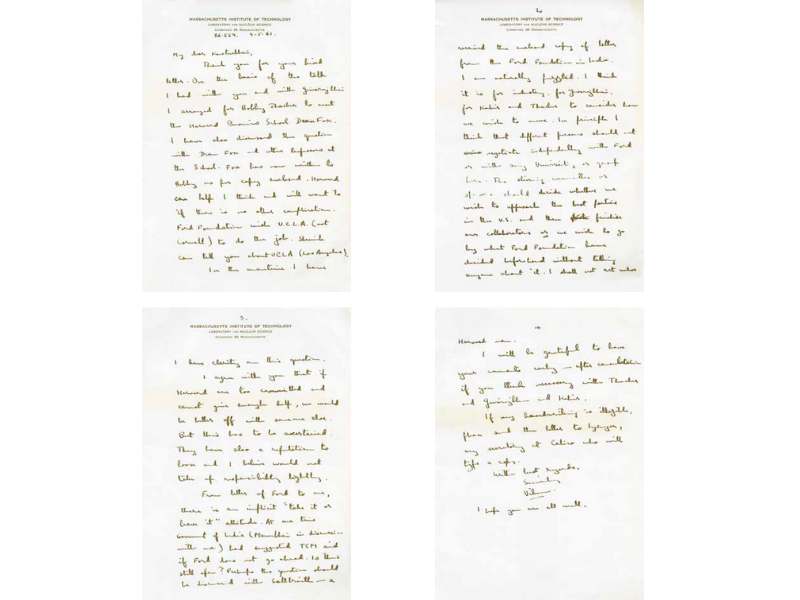 MASSACHUSETTS INSTITUTE OF TECHNOLOGY
LABORATORY FOR NUCLEAR SCIENCE
CAMBRIDGE 39, MASSACHUSETTS
4-5-61.
My dear Kasturbhai,
Thank you for your kind
letter. On the basis of the talk
I had with you and with
I arranged for Bobby Thacher to meet
the Harvard Business School Dean Fox.
I have also discussed the question
with Dean Fox and other Professors at
the School. Fox has now written to
Bobby as per copy enclosed. Harvard
can help I think and will want to
if there is no other complication.
Ford Foundation wish U.C.L.A. (not
Cornell) to do the job.
can tell you about UCLA (Los Angeles).
In the meantime I have
2.
MASSACHUSETTS INSTITUTE OF TECHNOLOGY
LABORATORY FOR NUCLEAR SCIENCE
CAMBRIDGE 39, MASSACHUSETTS
received the enclosed copy of letter
from the Ford Foundation in India.
I am naturally puzzled. I think
it is for industry, for
for Kabir and Thacher to consider how
we wish to move. In principle I
think that different persons should not
negotiate independently with Ford
or with any University or group
here. The steering committee or
should decide whether we
wish to approach the best parties
in the U.S. and then finalise
our collaborators or we wish to go
by what Ford Foundation have
decided beforehand without telling
anyone about it. I shall not act unless
3.
MASSACHUSETTS INSTITUTE OF TECHNOLOGY
LABORATORY FOR NUCLEAR SCIENCE
CAMBRIDGE 39, MASSACHUSETTS
I have clarity on this question.
I agree with you that if
Harvard are too committed and
cannot give enough help, we would
be better off with someone else.
But this has to be ascertained.
They have also a reputation to
loose and I believe would not
take up responsibility lightly.
From letter of Ford to me,
there is an implicit "take it or
leave it" attitude. At one time
Government of India (Manubhai in discussion
with me) had suggested TCM aid
if Ford does not go ahead. Is this
still open? Perhaps the question should
be discussed with Galbraith — a
4
Harvard man.
I will be grateful to have
your comments early — after consultation
if you think necessary with Thacher
and and Kabir.
If my handwriting is illegible,
please send the letter to Iyengar,
my secretary at Calico who will
type a copy.
With best regards,
Sincerely
Vikram
I hope you are all well.